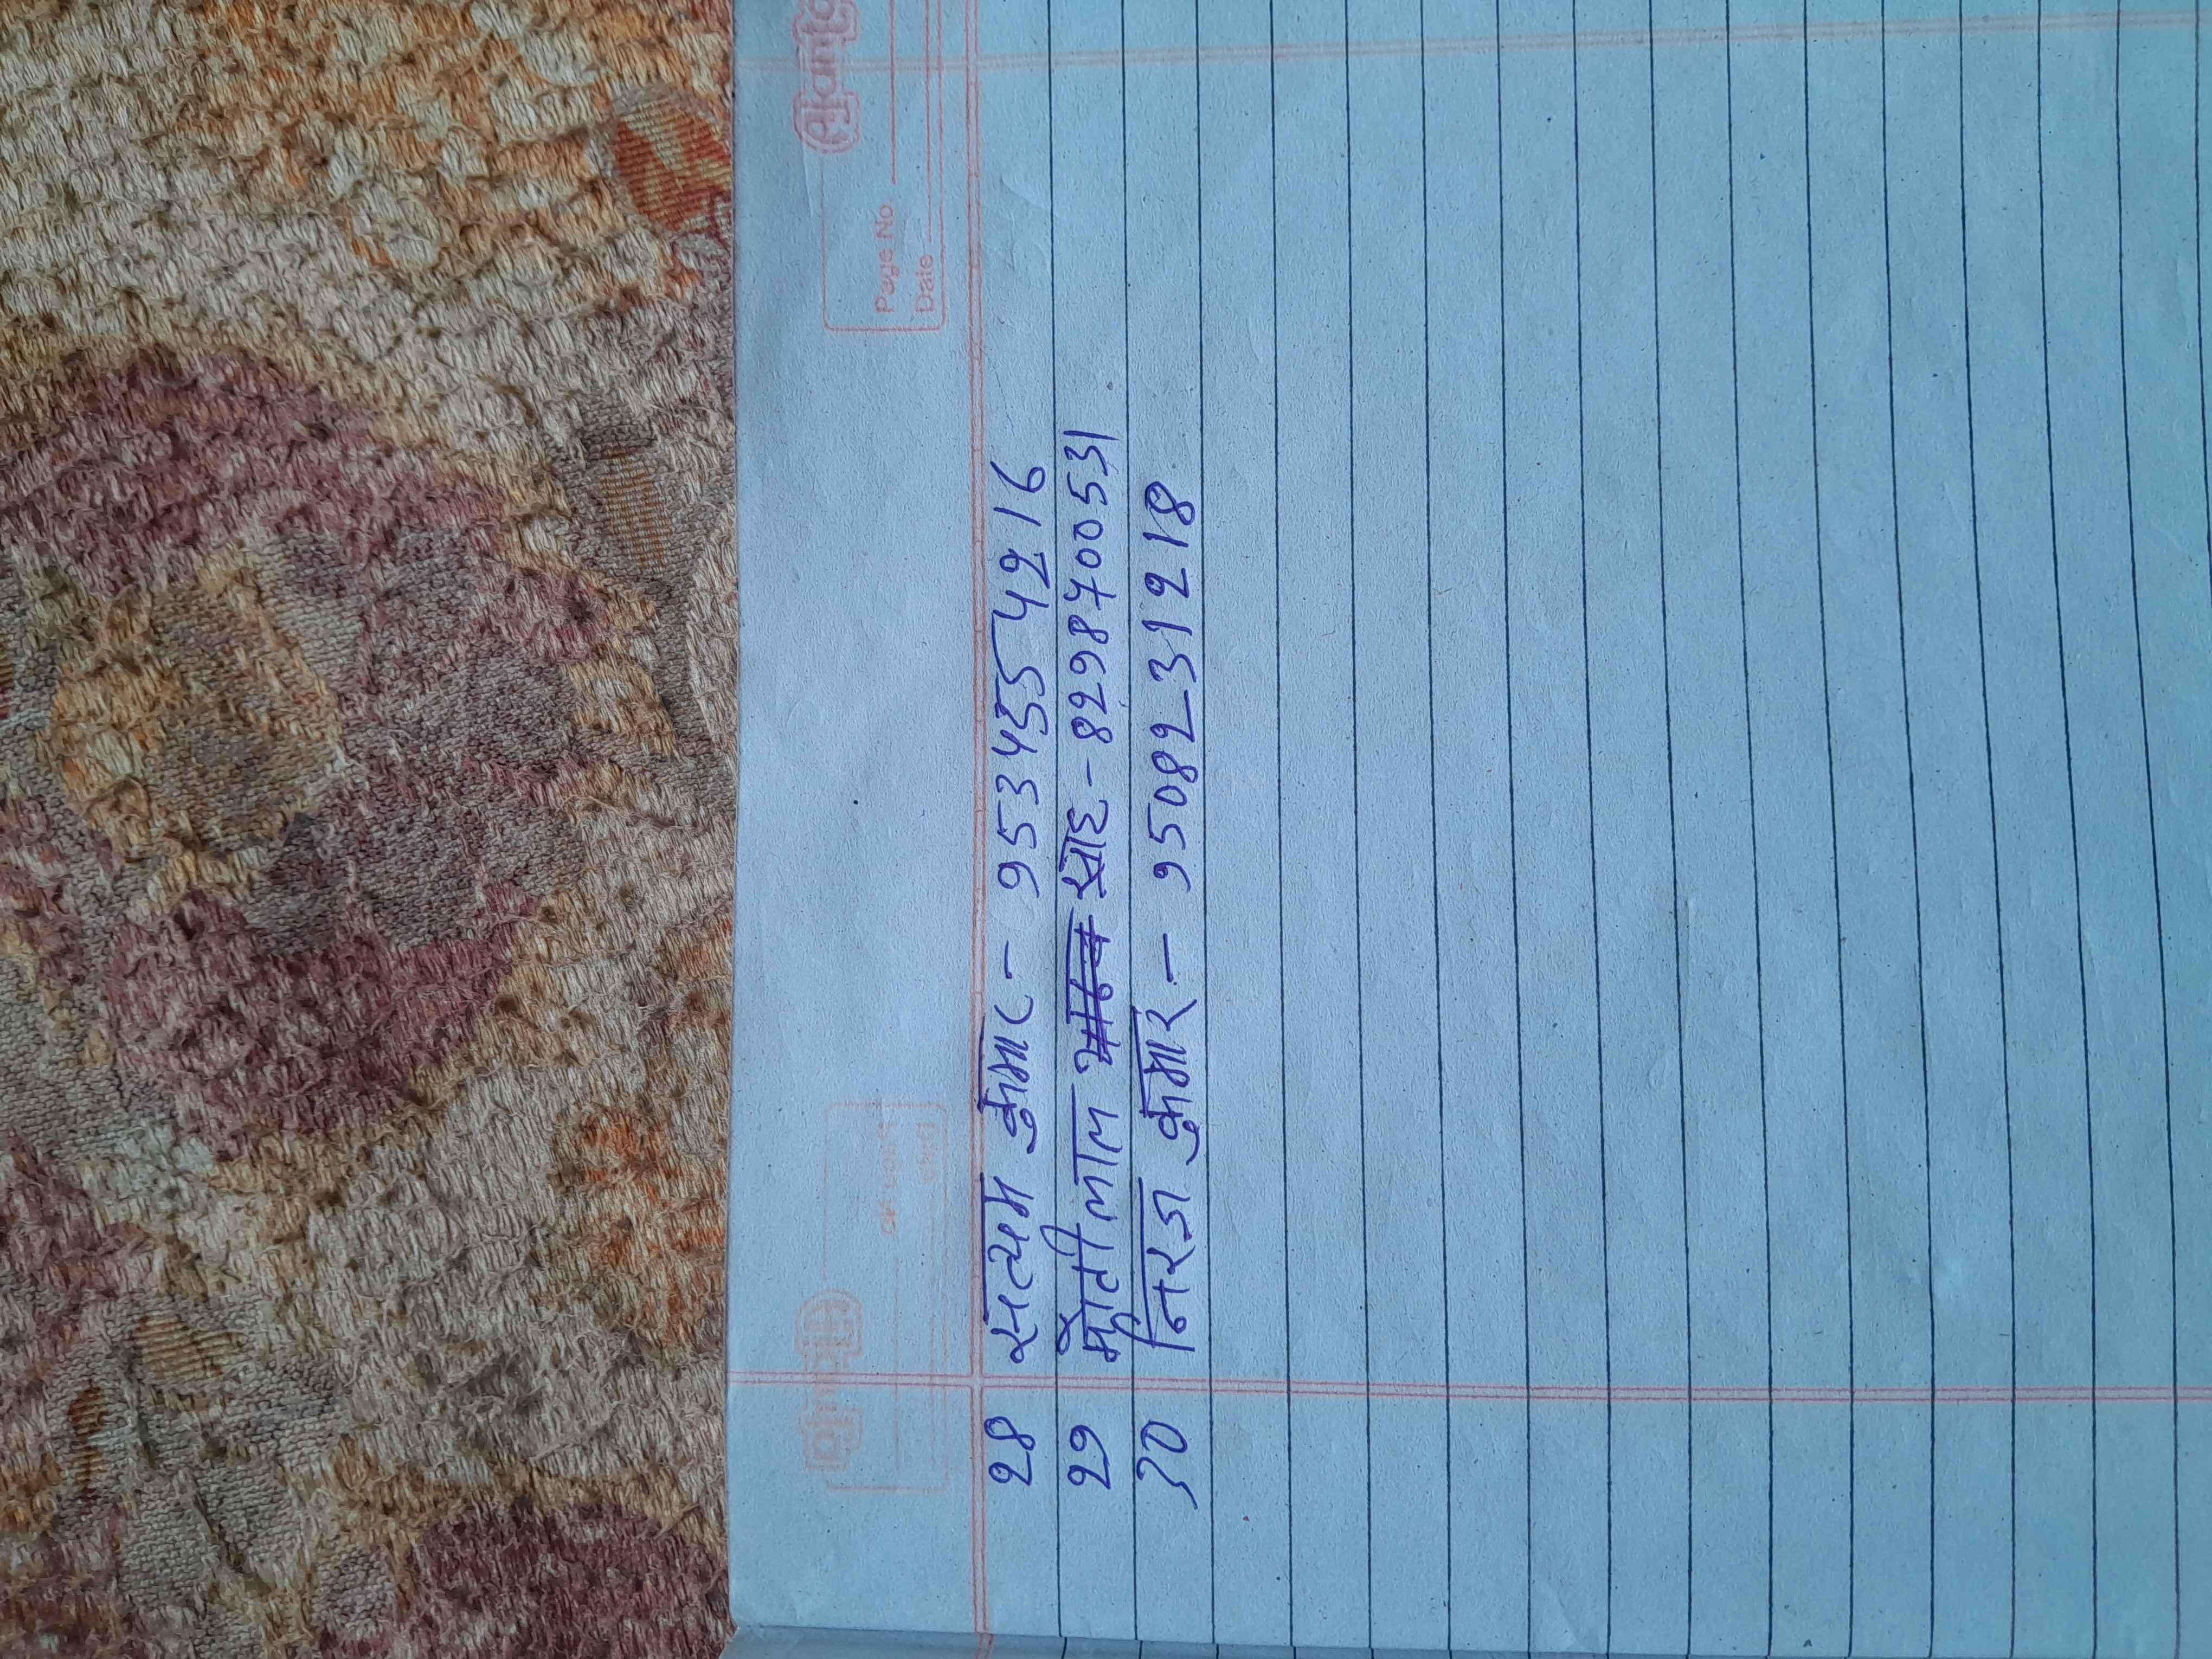 Ajanta
Page No
Date
28 सत्यम कुमार - 9534554216
29 मोती लाल साह - 8298700531
30 निरज कुमार - 9508231218